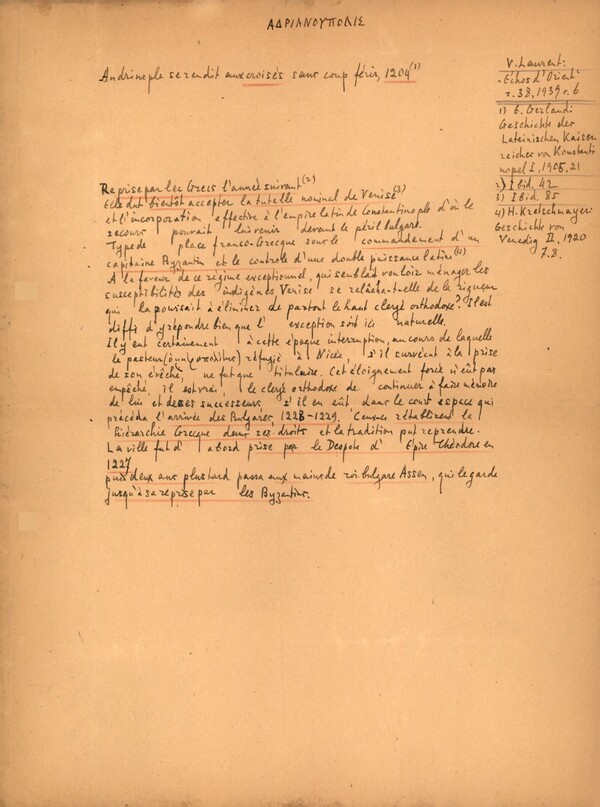 ΑΔΡΙΑΝΟΥΠΟΛΙΣ
Andrinople se rendit aux croisés sans coup férir, 1204 (1)
V. Laurent:
Echos d'Orient
t. 38, 1939 σ. 6
1) E. Gerland:
Geschichte des
Lateinischen Kaiser
reiches von Konstanti
nopel I, 1905, 21
2) Ibid. 42
3) Ibid. 85
4) H. Kretschmayer:
Geschichte von
Venedig II, 1920
7.8.
Reprise par les Grecs l'année suivant (2)
Elle dut bientôt accepter la tutelle nominal de Venise (3)
et l'incorporation effective à l'empire latin de Constantinople d'où le
secours pouvait lui venir devant le péril bulgare.
Type de place franco-Grecque sous le commandement d'un
capitaine Byzantin et le controle d'une double puissance latine (4)
A la faveur de ce régime exceptionnel, qui semblait vouloir ménager les
susceptibilités des indigènes, Venise se relâcha-t-elle de la rigueur
qui la poussait à éliminer de partout le haut clergé orthodoxe? Il est
diffi d'y répondre bien que l' exception soit ici naturelle.
Il y eut certainement à cette époque interruption, au cours de laquelle
le pasteur réfugié à Nicée, s'il survécut à la prise
de son évêché, ne fut que titulaire. Cet éloignement forcé n'eût pas
empêché, il est vrai le clergé orthodoxe de continuer à faire mémoire
de lui et de ses successeurs s'il en eût dans le court espace qui
précéda l'arrivée des Bulgares, 1228-1229. Ceux-ci rétablirent la
hiérarchie Grecque dans ses droits et la tradition put reprendre.
La ville fut d' abord prise par le Despote d' Epire Théodore en
1227
puis deux ans plus tard passa aux mains de roi bulgare Assen, qui le garde
jusqu'à sa reprise par les Byzantins.